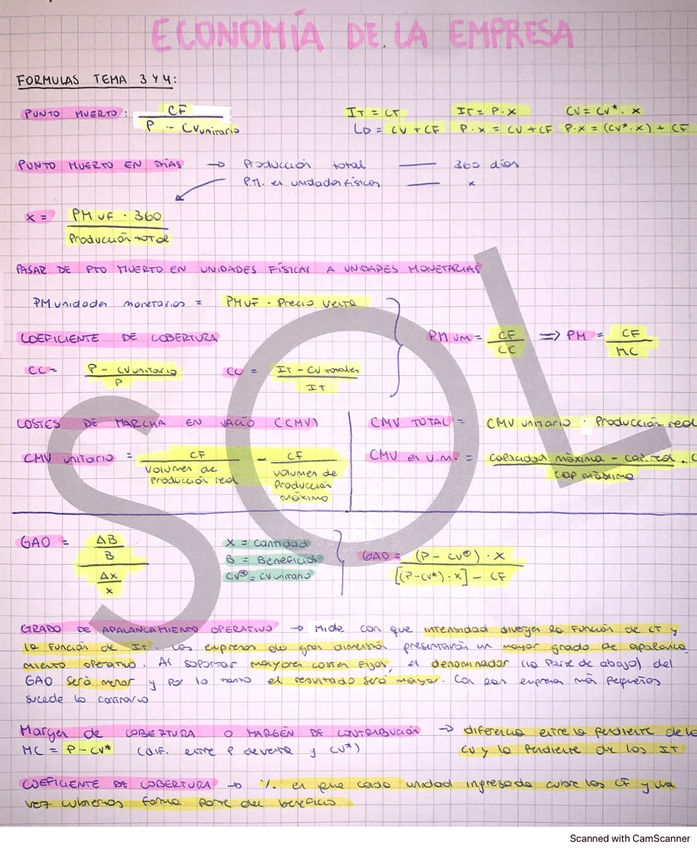 ECONOMÍA DE LA EMPRESA
FORMULAS TEMA 3 Y 4:
PUNTO MUERTO: CF / P - CVunitario
IT = CT IT = P·X CV = CV*·X
LD = CV + CF P·X = CV + CF P·X = (CV*·X) + CF
PUNTO MUERTO EN DÍAS → Producción total —— 360 días
P.M. en unidades físicos —— X
X = PMUF · 360 / Producción total
PASAR DE PTO MUERTO EN UNIDADES FÍSICAS A UNIDADES MONETARIAS
PM unidades monetarios = PMUF · Precio venta
COEFICIENTE DE COBERTURA
PM UM = CF / CC ⇒ PM = CF / MC
CC = P - CVunitario / P CC = IT - CV totales / IT
COSTES DE MARCHA EN VACÍO (CMV)
CMV TOTAL = CMV unitario · Producción real
CMV unitario = CF / Volumen de producción real - CF / Volumen de Producción Máximo
CMV en U.M. = capacidad máxima - cap. real . C / cap máxima
GAO = ΔB / B / Δx / x
X = Cantidad
B = Beneficio
CV* = CV unitario
GAO = (P - CV*) · X / [(P - CV*) · X] - CF
GRADO DE APALANCAMIENTO OPERATIVO → Mide con que intensidad divergen la función de CT y
la función de IT. Las empresas de gran dimensión presentarán un mayor grado de apalanca-
miento operativo. Al soportar mayores costes fijos, el denominador (la parte de abajo) del
GAO será menor y por lo tanto el resultado será mayor. Con las empresas más pequeñas
sucede lo contrario
Margen de COBERTURA O MARGEN DE CONTRIBUCIÓN → diferencia entre la pendiente de lo
MC = P - CV* (dif. entre P de venta y CV*) CV y la pendiente de los IT
COEFICIENTE DE COBERTURA → % en que cada unidad ingresada cubre los CF y una
vez cubiertos forma parte del beneficio
SOL
Scanned with CamScanner